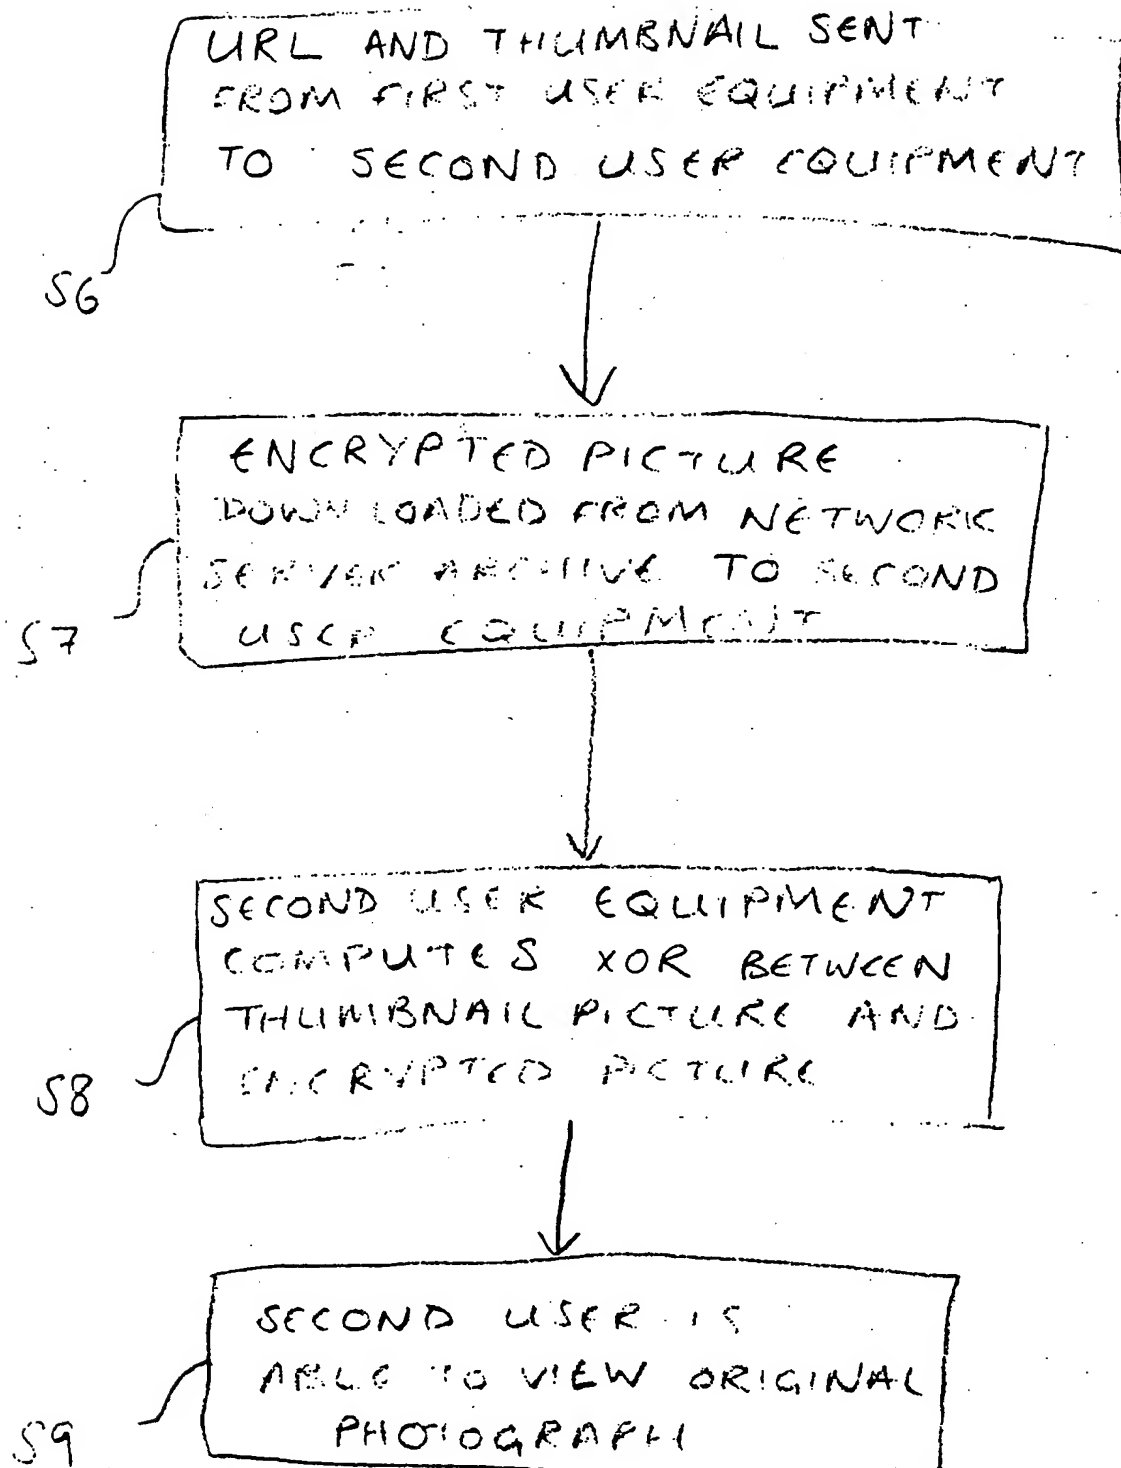 URL AND THUMBNAIL SENT
FROM FIRST USER EQUIPMENT
TO SECOND USER EQUIPMENT
S6
ENCRYPTED PICTURE
DOWNLOADED FROM NETWORK
SERVER ARCHIVE TO SECOND
USER EQUIPMENT
S7
SECOND USER EQUIPMENT
COMPUTES XOR BETWEEN
THUMBNAIL PICTURE AND
ENCRYPTED PICTURE
S8
SECOND USER IS
ABLE TO VIEW ORIGINAL
PHOTOGRAPH
S9